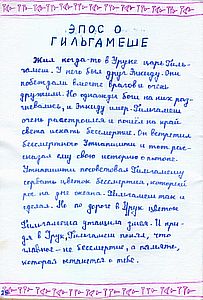 ЭПОС О
ГИЛЬГАМЕШЕ
Жил когда-то в Уруке царь Гиль-
гамеш. У него был друг Энкиду. Они
победили много врагов и очень
дружили. Но однажды боги на них раз-
гневались, и Энкиду умер. Гильгамеш
очень расстроился и пошёл на край
света искать бессмертие. Он встретил
бессмертного Утнапишти и тот рас-
сказал ему свою историю о потопе.
Утнапишти посоветовал Гильгамешу
сорвать цветок бессмертия, который
рос на дне океана. Гильгамеш так и
сделал. Но по дороге в Урук цветок
Гильгамеша утащила змея. И при-
дя в Урук, Гильгамеш понял, что
главное - не бессмертие, а память,
которая останется о тебе.